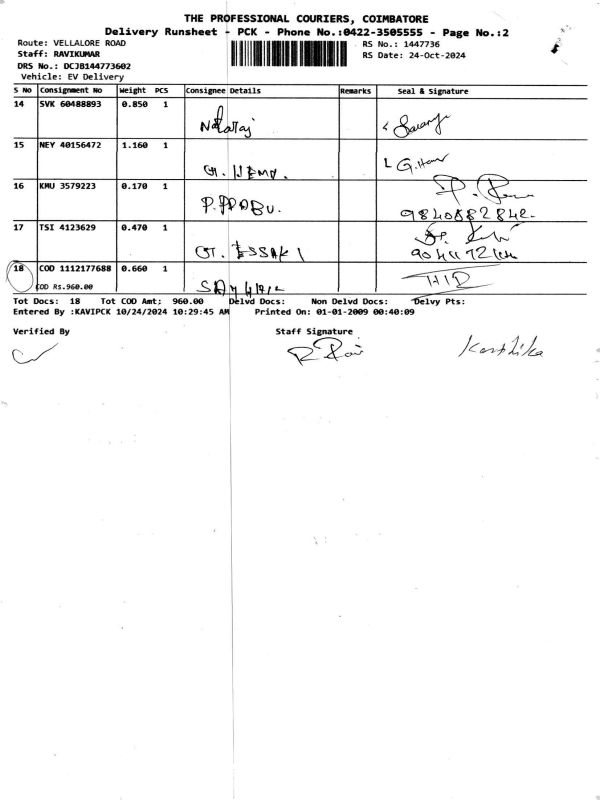 THE PROFESSIONAL COURIERS, COIMBATORE
Delivery Runsheet - PCK - Phone No.:0422-3505555 - Page No.:2
Route: VELLALORE ROAD
RS No.: 1447736
Staff: RAVIKUMAR
RS Date: 24-Oct-2024
DRS No.: DCJB144773602
Vehicle: EV Delivery
S No Consignment No Weight PCS Consignee Details Remarks Seal & Signature
14 SVK 60488893 0.850 1
Nataraj
15 NEY 40156472 1.160 1
G. HEMA. G.Hem
16 KMU 3579223 0.170 1
P. PRABU. 9840882842
17 TSI 4123629 0.470 1
GT. ESSAKI
18 COD 1112177688 0.660 1
COD Rs.960.00
H/D
Tot Docs: 18 Tot COD Amt; 960.00 Delvd Docs: Non Delvd Docs: Delvy Pts:
Entered By :KAVIPCK 10/24/2024 10:29:45 AM Printed On: 01-01-2009 00:40:09
Verified By Staff Signature
R Rai Karthika